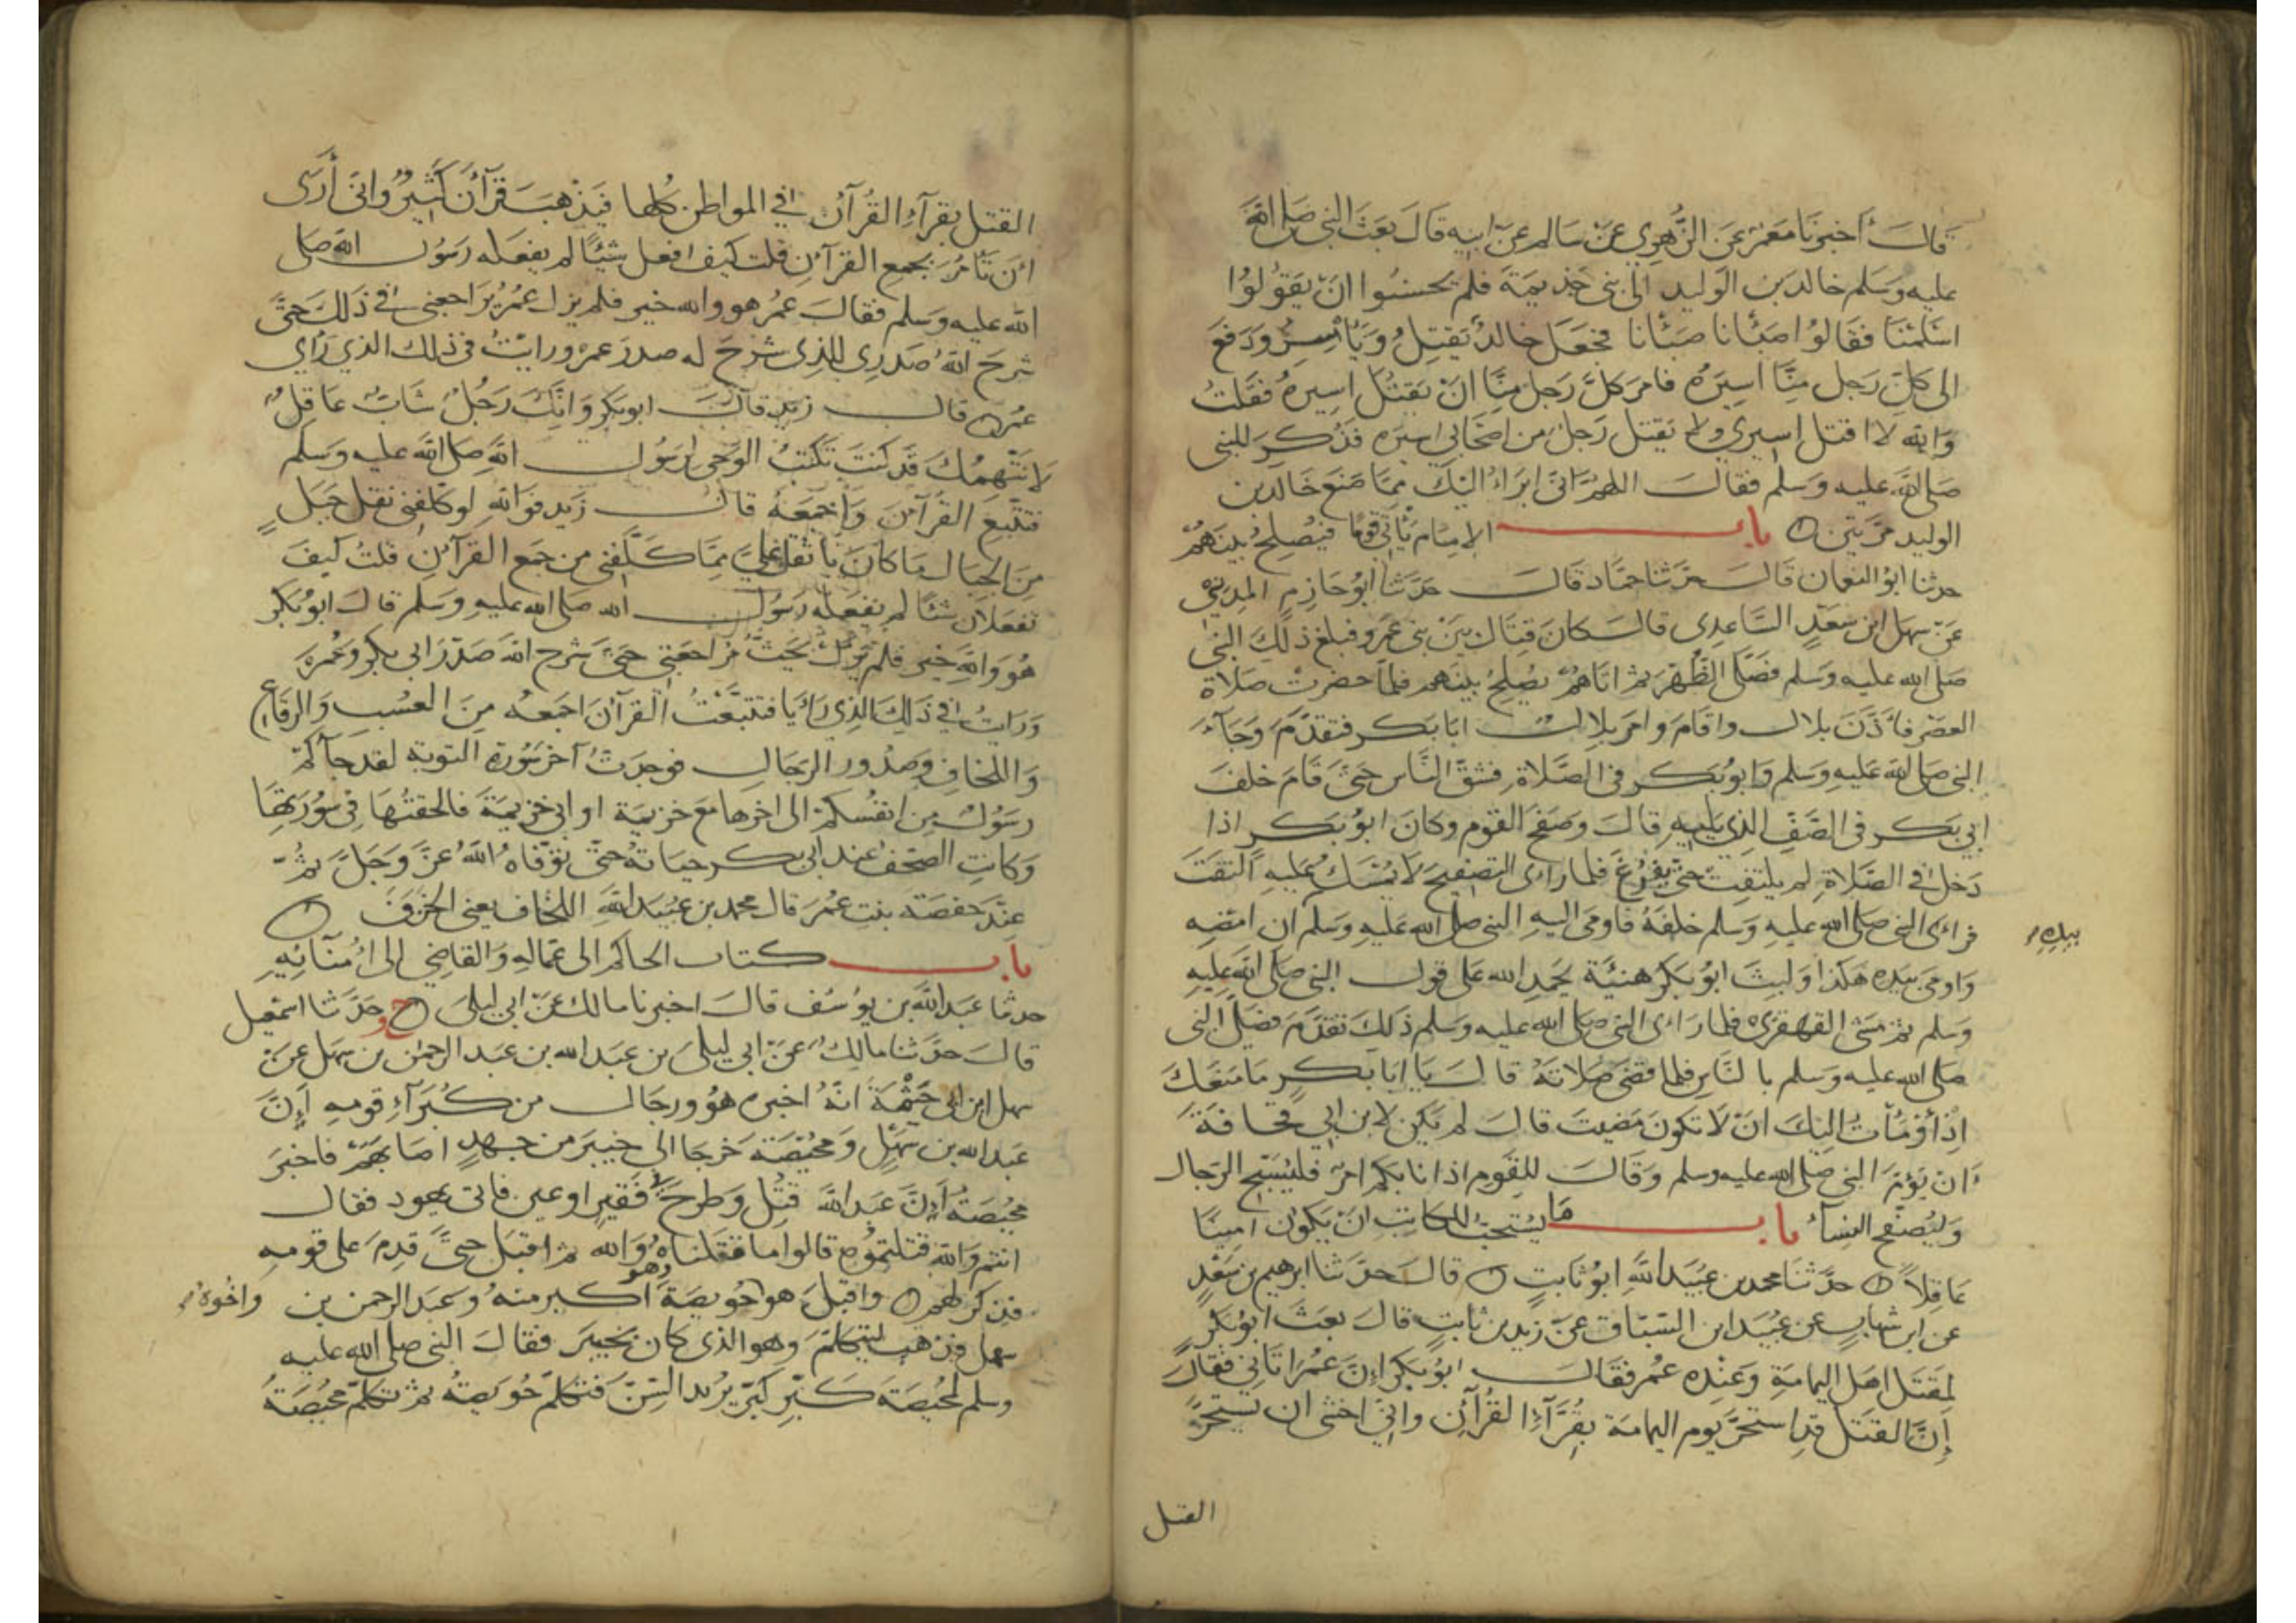 قال أخبرنا معمر عن الزهري عن سالم عن ابيه قال بعث النبي صلى الله
عليه وسلم خالد بن الوليد الى بني جذيمة فلم يحسنوا ان يقولوا
اسلمنا فقالوا صبأنا صبأنا فجعل خالد يقتل ويأسر ودفع
الى كل رجل منا اسيره فامر كل رجل منا ان يقتل اسيره فقلت
والله لا اقتل اسيري ولا يقتل رجل من اصحابي اسيره فذكر للنبي
صلى الله عليه وسلم فقال اللهم اني ابراء اليك مما صنع خالد بن
الوليد مرتين باب الامام يأتي قوما فيصلح بينهم
حدثنا ابو النعمان قال حدثنا حماد قال حدثنا ابو حازم المديني
عن سهل ابن سعد الساعدي قال كان قتال بين بني عمرو فبلغ ذلك النبي
صلى الله عليه وسلم فصلى الظهر ثم اتاهم يصلح بينهم فلما حضرت صلاة
العصر فأذن بلال واقام وامر بلال ابا بكر فتقدم وجاء
النبي صلى الله عليه وسلم وابو بكر في الصلاة فشق الناس حتى قام خلف
ابي بكر في الصف الذي يليه قال وصفح القوم وكان ابو بكر اذا
دخل في الصلاة لم يلتفت حتى يفرغ فلما راءى التصفيح لا يمسك عليه التفت
فراءى النبي صلى الله عليه وسلم خلفه فاومى اليه النبي صلى الله عليه وسلم ان امضه
بيده
واومى بيده هكذا ولبث ابو بكر هنية يحمد الله على قول النبي صلى الله عليه
وسلم ثم مشى القهقرى فلما راءى النبي صلى الله عليه وسلم ذلك تقدم فصلى النبي
صلى الله عليه وسلم بالناس فلما قضى صلاته قال يا ابا بكر ما منعك
اذ أومأت اليك ان لا تكون مضيت قال لم يكن لابن ابي قحافة
ان يؤم النبي صلى الله عليه وسلم وقال للقوم اذا نابكم امر فليسبح الرجال
وليصفح النساء باب ما يستحب للكاتب ان يكون امينا
عاقلا حدثنا محمد بن عبيد الله ابو ثابت قال حدثنا ابرهيم بن سعد
عن ابن شهاب عن عبيد ابن السباق عن زيد بن ثابت قال بعث ابو بكر
لمقتل اهل اليمامة وعنده عمر فقال ابو بكر إن عمر اتاني فقال
إن القتل قد استحر يوم اليمامة بقراء القرآن واني اخشى ان يستحر
القتل
القتل بقراء القرآن في المواطن كلها فيذهب قرآن كثير واني أرى
ان تأمر بجمع القرآن قلت كيف افعل شيئا لم يفعله رسول الله صلى
الله عليه وسلم فقال عمر هو والله خير فلم يزل عمر يراجعني في ذلك حتى
شرح الله صدري للذي شرح له صدر عمر ورايت في ذلك الذي راي
عمر قال زيد قال ابو بكر وانك رجل شاب عاقل
لا نتهمك قد كنت تكتب الوحي لرسول الله صلى الله عليه وسلم
فتتبع القرآن واجمعه قال زيد فوالله لو كلفني نقل جبل
من الجبال ما كان بأثقل علي مما كلفني من جمع القرآن قلت كيف
تفعلان شئا لم يفعله رسول الله صلى الله عليه وسلم قال ابو بكر
هو والله خير فلم يزل يحث مراجعتي حتى شرح الله صدر ابي بكر وعمر
ورايت في ذلك الذي رأيا فتتبعت القرآن اجمعه من العسب والرقاع
واللخاف وصدور الرجال فوجدت آخر سورة التوبة لقد جآكم
رسول من انفسكم الى اخرها مع خزيمة او ابي خزيمة فالحقتها في سورتها
وكانت الصحف عند ابي بكر حياته حتى توفاه الله عز وجل ثم
عند حفصة بنت عمر قال محمد بن عبيد الله اللخاف يعني الخزف
باب كتاب الحاكم الى عماله والقاضي الى امنائه
حدثنا عبد الله بن يوسف قال اخبرنا مالك عن ابي ليلى ح وحدثنا اسمعيل
قال حدثنا مالك عن ابي ليلى بن عبد الله بن عبد الرحمن بن سهل عن
سهل ابن ابي حثمة انه اخبره هو ورجال من كبرآء قومه أن
عبد الله بن سهل ومحيصة خرجا الى خيبر من جهد اصابهم فاخبر
محيصة أن عبد الله قتل وطرح في فقير او عين فاتى يهود فقال
انتم والله قتلتموه قالوا ما قتلناه والله ثم اقبل حتى قدم على قومه
فذكر لهم واقبل هو واخوه حويصة وهو اكبر منه وعبد الرحمن بن
سهل فذهب ليتكلم وهو الذي كان بخيبر فقال النبي صلى الله عليه
وسلم لمحيصة كبر كبر يريد السن فتكلم حويصة ثم تكلم محيصة